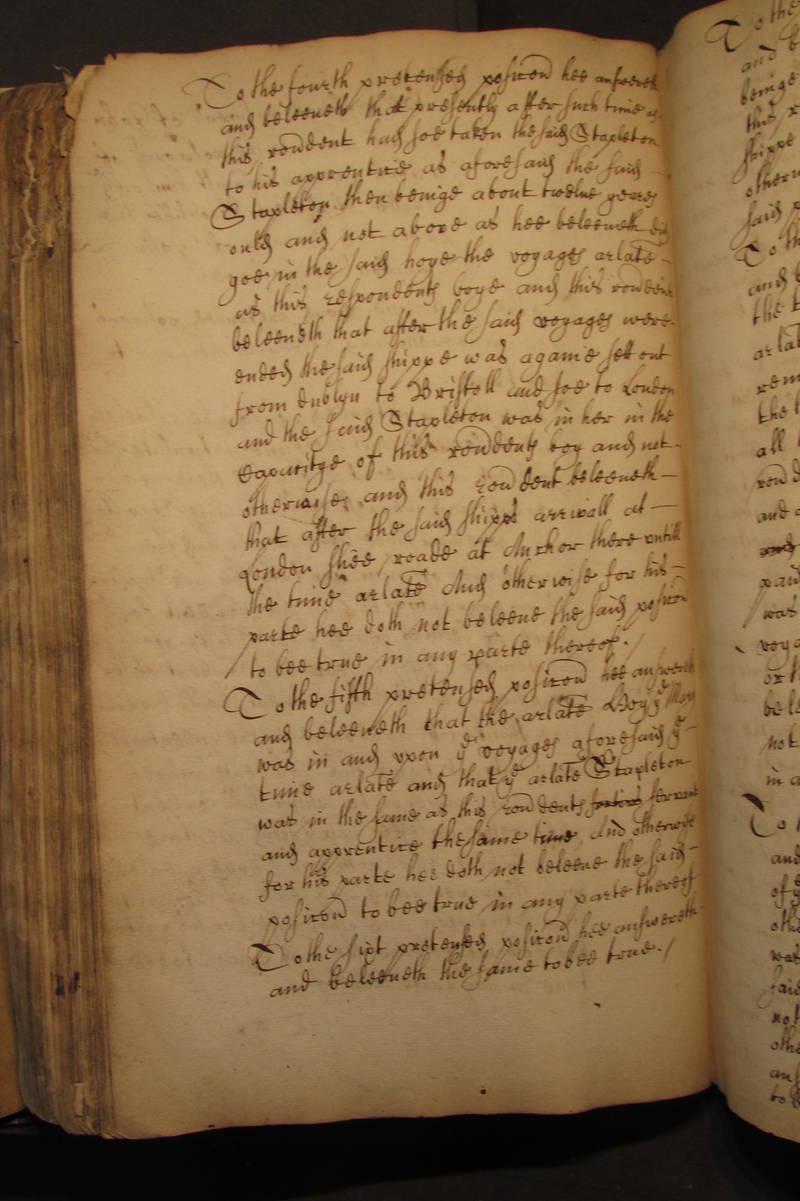 To the fourth pretensed posicon hee answereth
and beleeveth that presently after such time as
this rondent had soe taken the said Stapleton
to his apprentice as aforesaid the said
Stapleton then beinge about twelve yeares
ould and not above as hee beleeveth did
goe in the said hoye the voyages arlate
as this respondents boye and this rondent
beleeveth that after the said voyages were
ended the said shippe was againe sett out
from dublyn to Bristoll and soe to London
and the said Stapleton was in her in the
Capacitye of this rondents boy and not
otherwise, and this rondent beleeveth
that after the said shipps arrivall at
London shee roade at Anchor there untill
the time arlate And otherwise for his
parte hee doth not beleeve the said posicon
to bee true in any parte thereof. /
To the fifth pretensed posicon hee answereth
and beleeveth that the arlate
was in and upon ye voyages aforesaid ye
time arlate and that ye arlate Stapleton
was in the same as this rondents servant
and apprentice the same time, And otherwise
for his parte hee doth not beleeve the said
posicon to bee true in any parte thereof
To the sixt pretensed posicon hee answereth
and beleeveth the same to bee true. /
To the
and b
beinge
this
shippe
otherw
said p
To th
and b
the t
arlat
rem
the
all
rond
and
was
voya
or th
bele
not
in a
To
and
of ye
oth
was
said
not
othe
an
to b